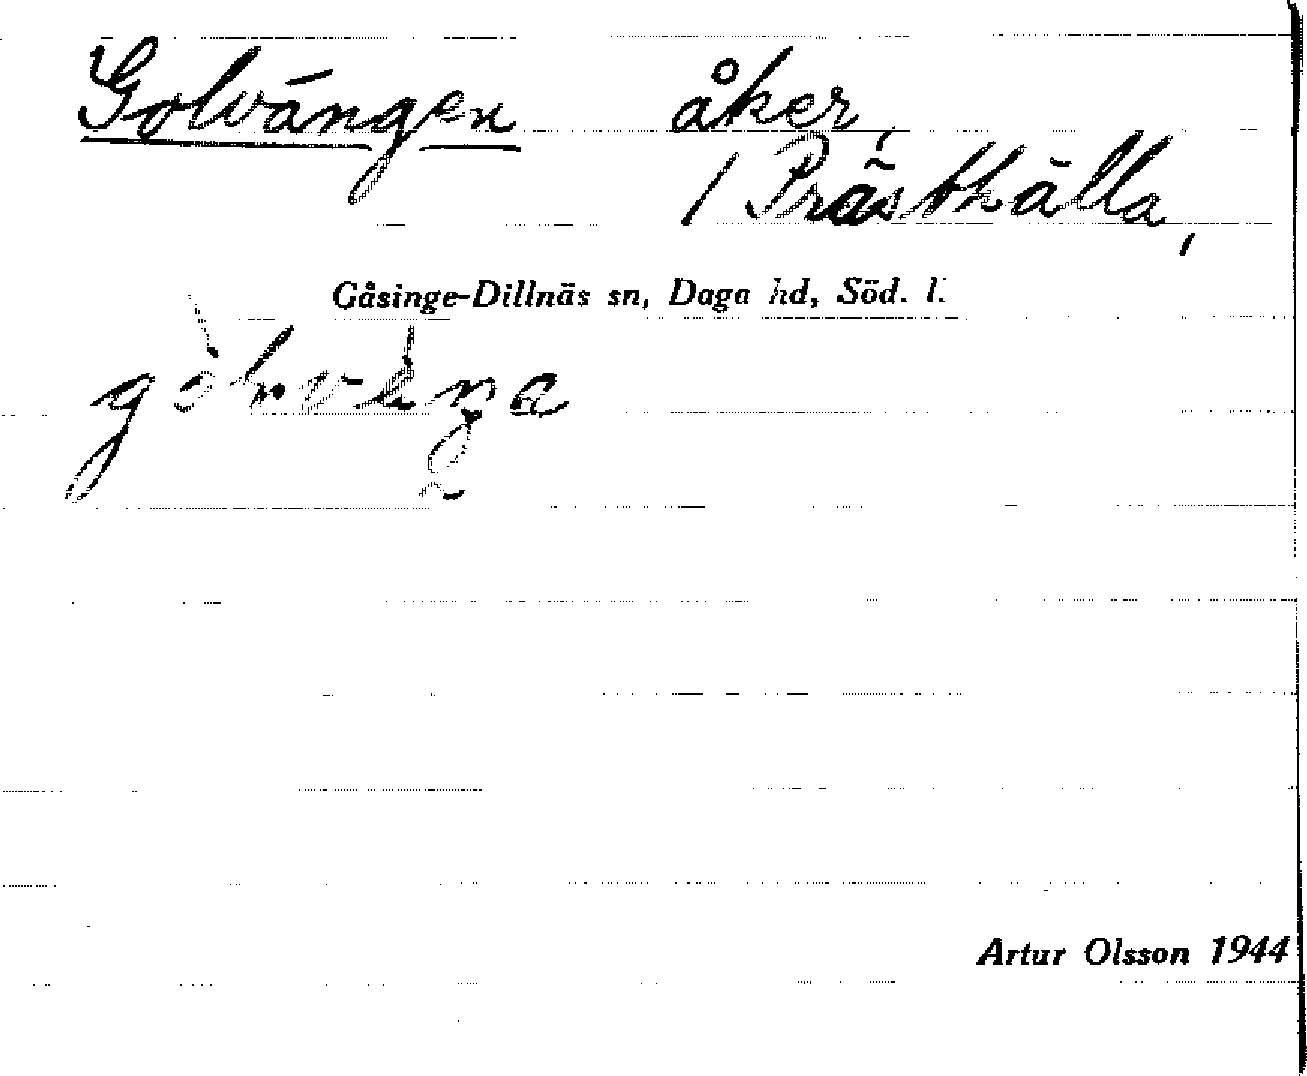 Golvängen åker,
/ Prästhälla,
Gåsinge-Dillnäs sn, Daga hd, Söd. l.
Artur Olsson 1944